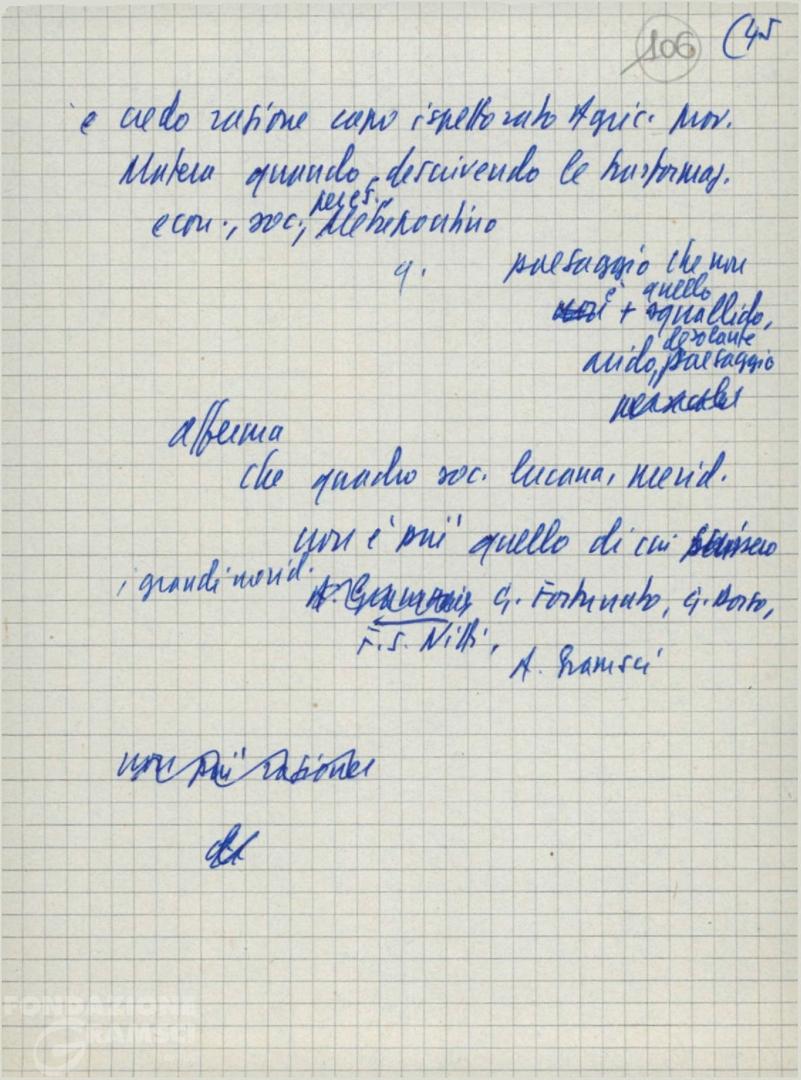 106 (45
e credo ragione capo ispettorato Agric. Prov.
Matera quando, descrivendo le trasformaz.
econ., soc., paes. Metapontino
q. paesaggio che non
è + quello squallido,
arido, desolante paesaggio
afferma
che quadro soc. lucana, merid.
non è più quello di cui scrissero
i grandi merid.
A. Gramsci G. Fortunato, G. Dorso,
F.S. Nitti,
A. Gramsci
non più ragione
FONDAZIONE
GRAMSCI